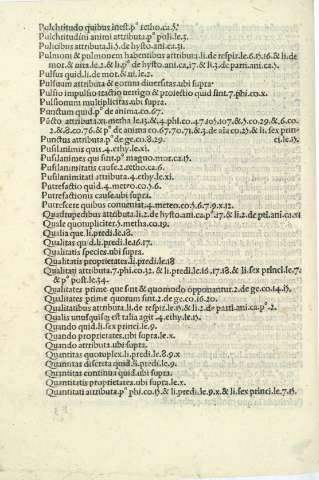 Pulchritudo quibus inest.pº retho.ca.5.
Pulchritudini animi attributa.pº poli.le.3.
Pulicibus attributa.li.5.de hysto.ani.ca.31.
Pulmoni & pulmonem habentibus attributa.li.de respir.le.6.15.16 & li.de
mor.& uita.le.2.& li.pº de hysto.ani.ca.17.& li.3.de parti.ani.ca.5.
Pulsus quid.li.de mor.& ui.le.2.
Pulsuum attributa & eorum diuersitas.ubi supra.
Pulsio impulsio tractio uertigo & proiectio quid sint.7.phi.co.x.
Pulsionum multiplicitas.ubi supra.
Punctum quid.pº de anima.co.67.
Pucto attributa.xi.metha.le.13.& 4.phi.co.47.105.107.& 5.co.29.& .6.co.
2.& 8.co.76.& pº de anima co.67.70.71 & 3.de aia co.25.& li.sex prin-
Punctus attributa.pº de ge.co.8.29. ci.le.15.
Pusilanimis quis.4.ethy.le.xi.
Pusilanimes qui sint.pº magno.mor.ca.15.
Pusilanimitatis cause.2.retho.ca.6.
Pusilanimitati attributa.4.ethy.le.xi.
Putrefactio quid.4.metheo.co.5.6.
Putrefactionis cause.ubi supra.
Putrescere quibus conueniat.4.metheo.co.5.6.7.9.x.12.
Quadrupedibus attributa.li.2.de hysto.ani.ca.pº.17.& li.2.de pti.ani.ca.xi
Quale quotupliciter.5.metha.co.19.
Qualia que.li.predi.le.18.
Qualitas quid.li.predi.le.16.17.
Qualitatis species.ubi supra.
Qualitatis proprietates.li.predi.le.18
Qualitati attributa.7.phi.co.32.& li.predi.le.16.17.18.& li.sex princi.le.7.
& pº post.le.34.
Qualitates prime que sint & quomodo opponantur.2.de ge.co.14.15.
Qualitates prime quotum sint.2.de ge.co.16.20.
Qualitatibus attributa.li.de respir.le.15.& li.2.de parti.ani.ca.pº.2.
Qualis unusquisq est talia agit.4.ethy.le.15.
Quando quid.li.sex princi.le.9.
Quando proprietates.ubi supra.le.x.
Quando attributa.ubi supra.
Quantitas quotuplex.li.predi.le.8.9.x
Quantitas discreta quid.li.predi.le.
Quantitas continua quid.ubi supra.
Quantitatis proprietates.ubi supra.le.x.
Quantitati attributa.pº phi.co.15.& li.predi.le.9.x & li.sex princi.le.7.15.